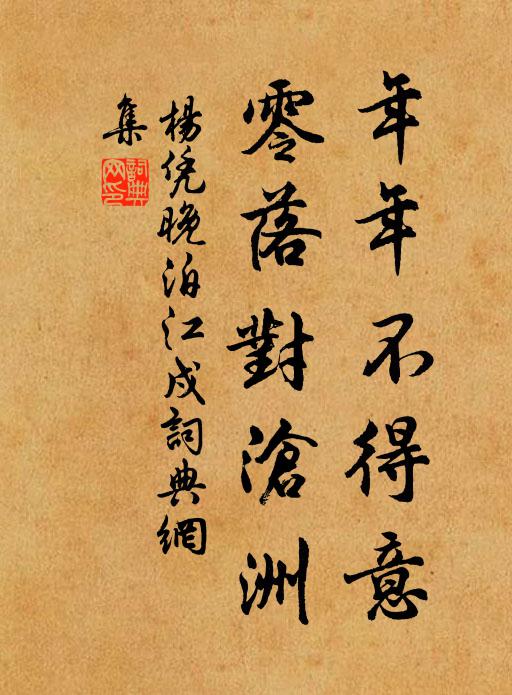 年年不得意
零落對滄洲
楊凭晚泊江戍詞典網
集
詞典網印